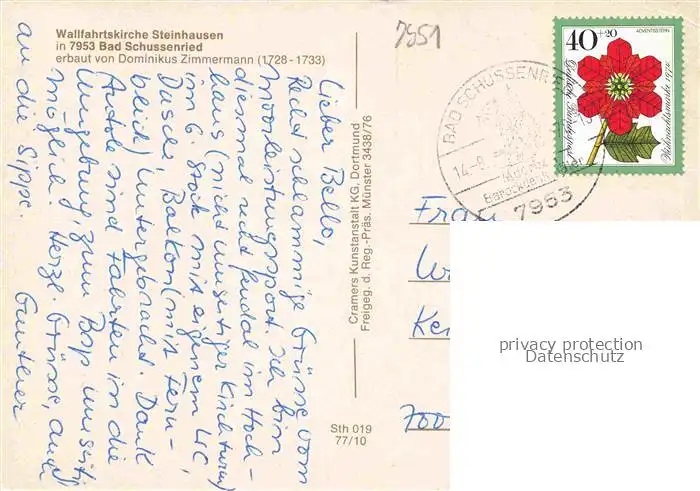 Wallfahrtskirche Steinhausen
in 7953 Bad Schussenried
erbaut von Dominikus Zimmermann (1728-1733)
Lieber Bello,
Recht schlammige Grüsse vom
moorleistungssport. Ich bin
diesmal recht feudal im Hoch-
haus (nicht umseitiger Kirchturm)
im 6. Stock mit eigenem WC,
Dusche, Balkon (mit Fern-
blick) untergebracht. Dank
Auto sind Fahrten in die
Umgebung, zum Bsp umseitig
möglich. Herzl. Grüsse, auch
an die Sippe.
Gunther
Cramers Kunstanstalt KG, Dortmund
Freigeg. d. Reg.-Präs. Münster 3438/76
Sth 019
77/10
7951
BAD SCHUSSENRIED
14.-8.
7953
40+20
ADVENTSSTERN
Deutsche Bundespost
Weihnachtsmarke 1974
Frau
700
privacy protection
Datenschutz